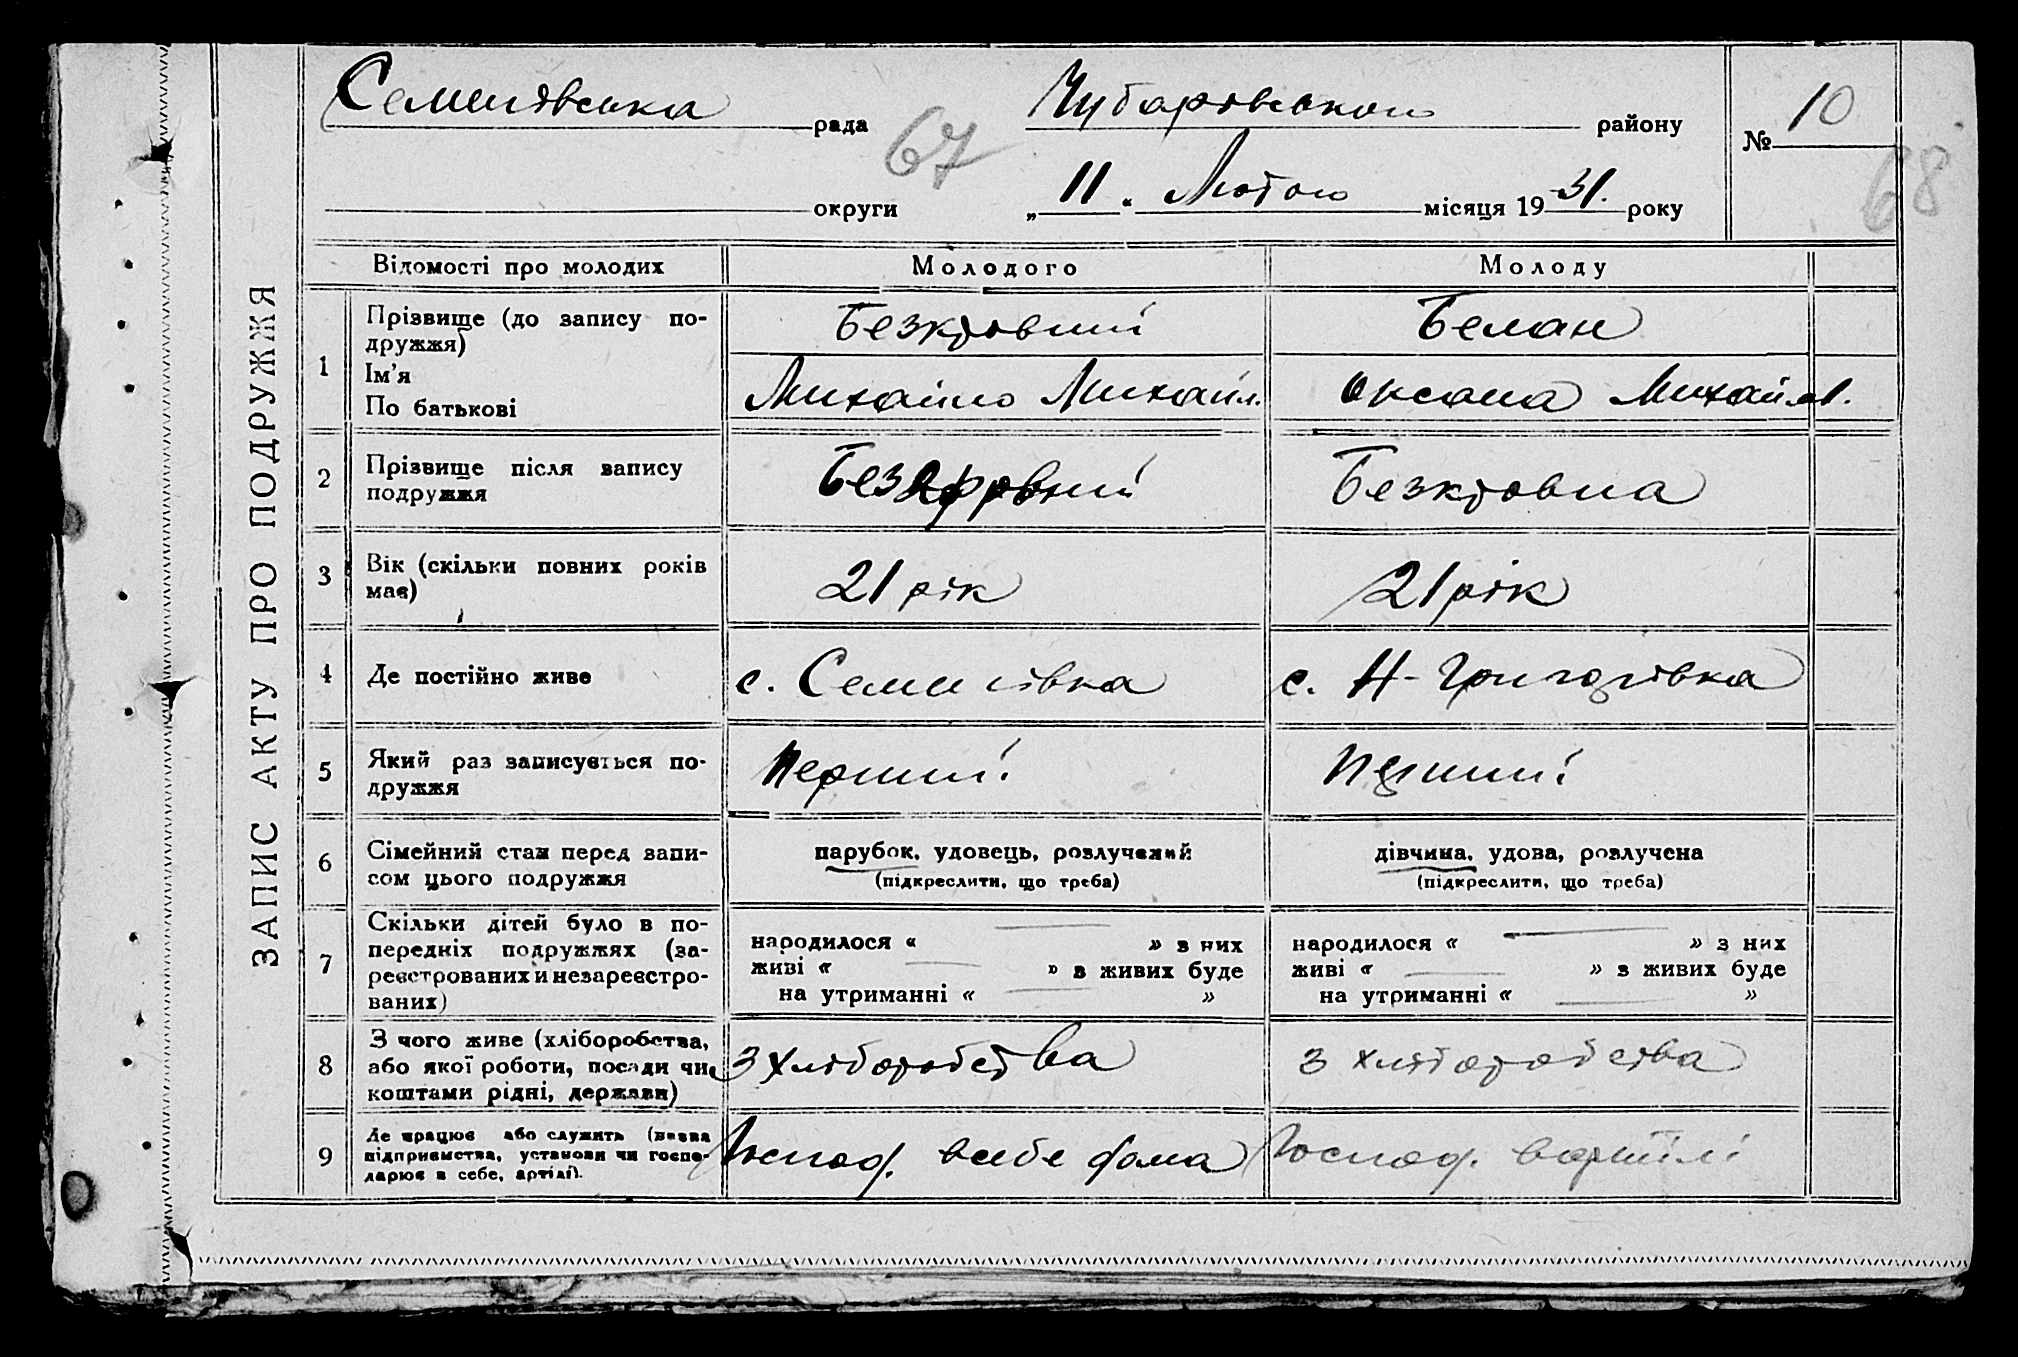 Семенівська рада Чубарівського району № 10
67 68
округи „11" Лютого місяця 1931. року
ЗАПИС АКТУ ПРО ПОДРУЖЖЯ
Відомості про молодих Молодого Молоду
1 Прізвище (до запису по-
дружжя) Безкровний Беман
Ім'я
По батькові Михайло Михайл. Оксана Михайлов.
2 Прізвище після запису
подружжя Безкровний Безкровна
3 Вік (скільки повних років
має) 21 рік 21 рік
4 Де постійно живе с. Семенівка с. Н-Григорівка
5 Який раз записується по-
дружжя Перший Перший
6 Сімейний стан перед запи-
сом цього подружжя
парубок, удовець, розлучений дівчина, удова, розлучена
(підкреслити, що треба) (підкреслити, що треба)
7 Скільки дітей було в по-
передніх подружжях (за-
реєстрованих и незареєстро-
ваних)
народилося « » з них народилося « » з них
живі « » з живих буде живі « » з живих буде
на утриманні « » на утриманні « »
8 З чого живе (хліборобства,
або якої роботи, посади чи
коштами рідні, держави) З хліборобства З хліборобства
9 Де працює або служить (назва
підприємства, установи чи госпо-
дарює в себе, артілі). Господ. всебе дома Господ. вартілі